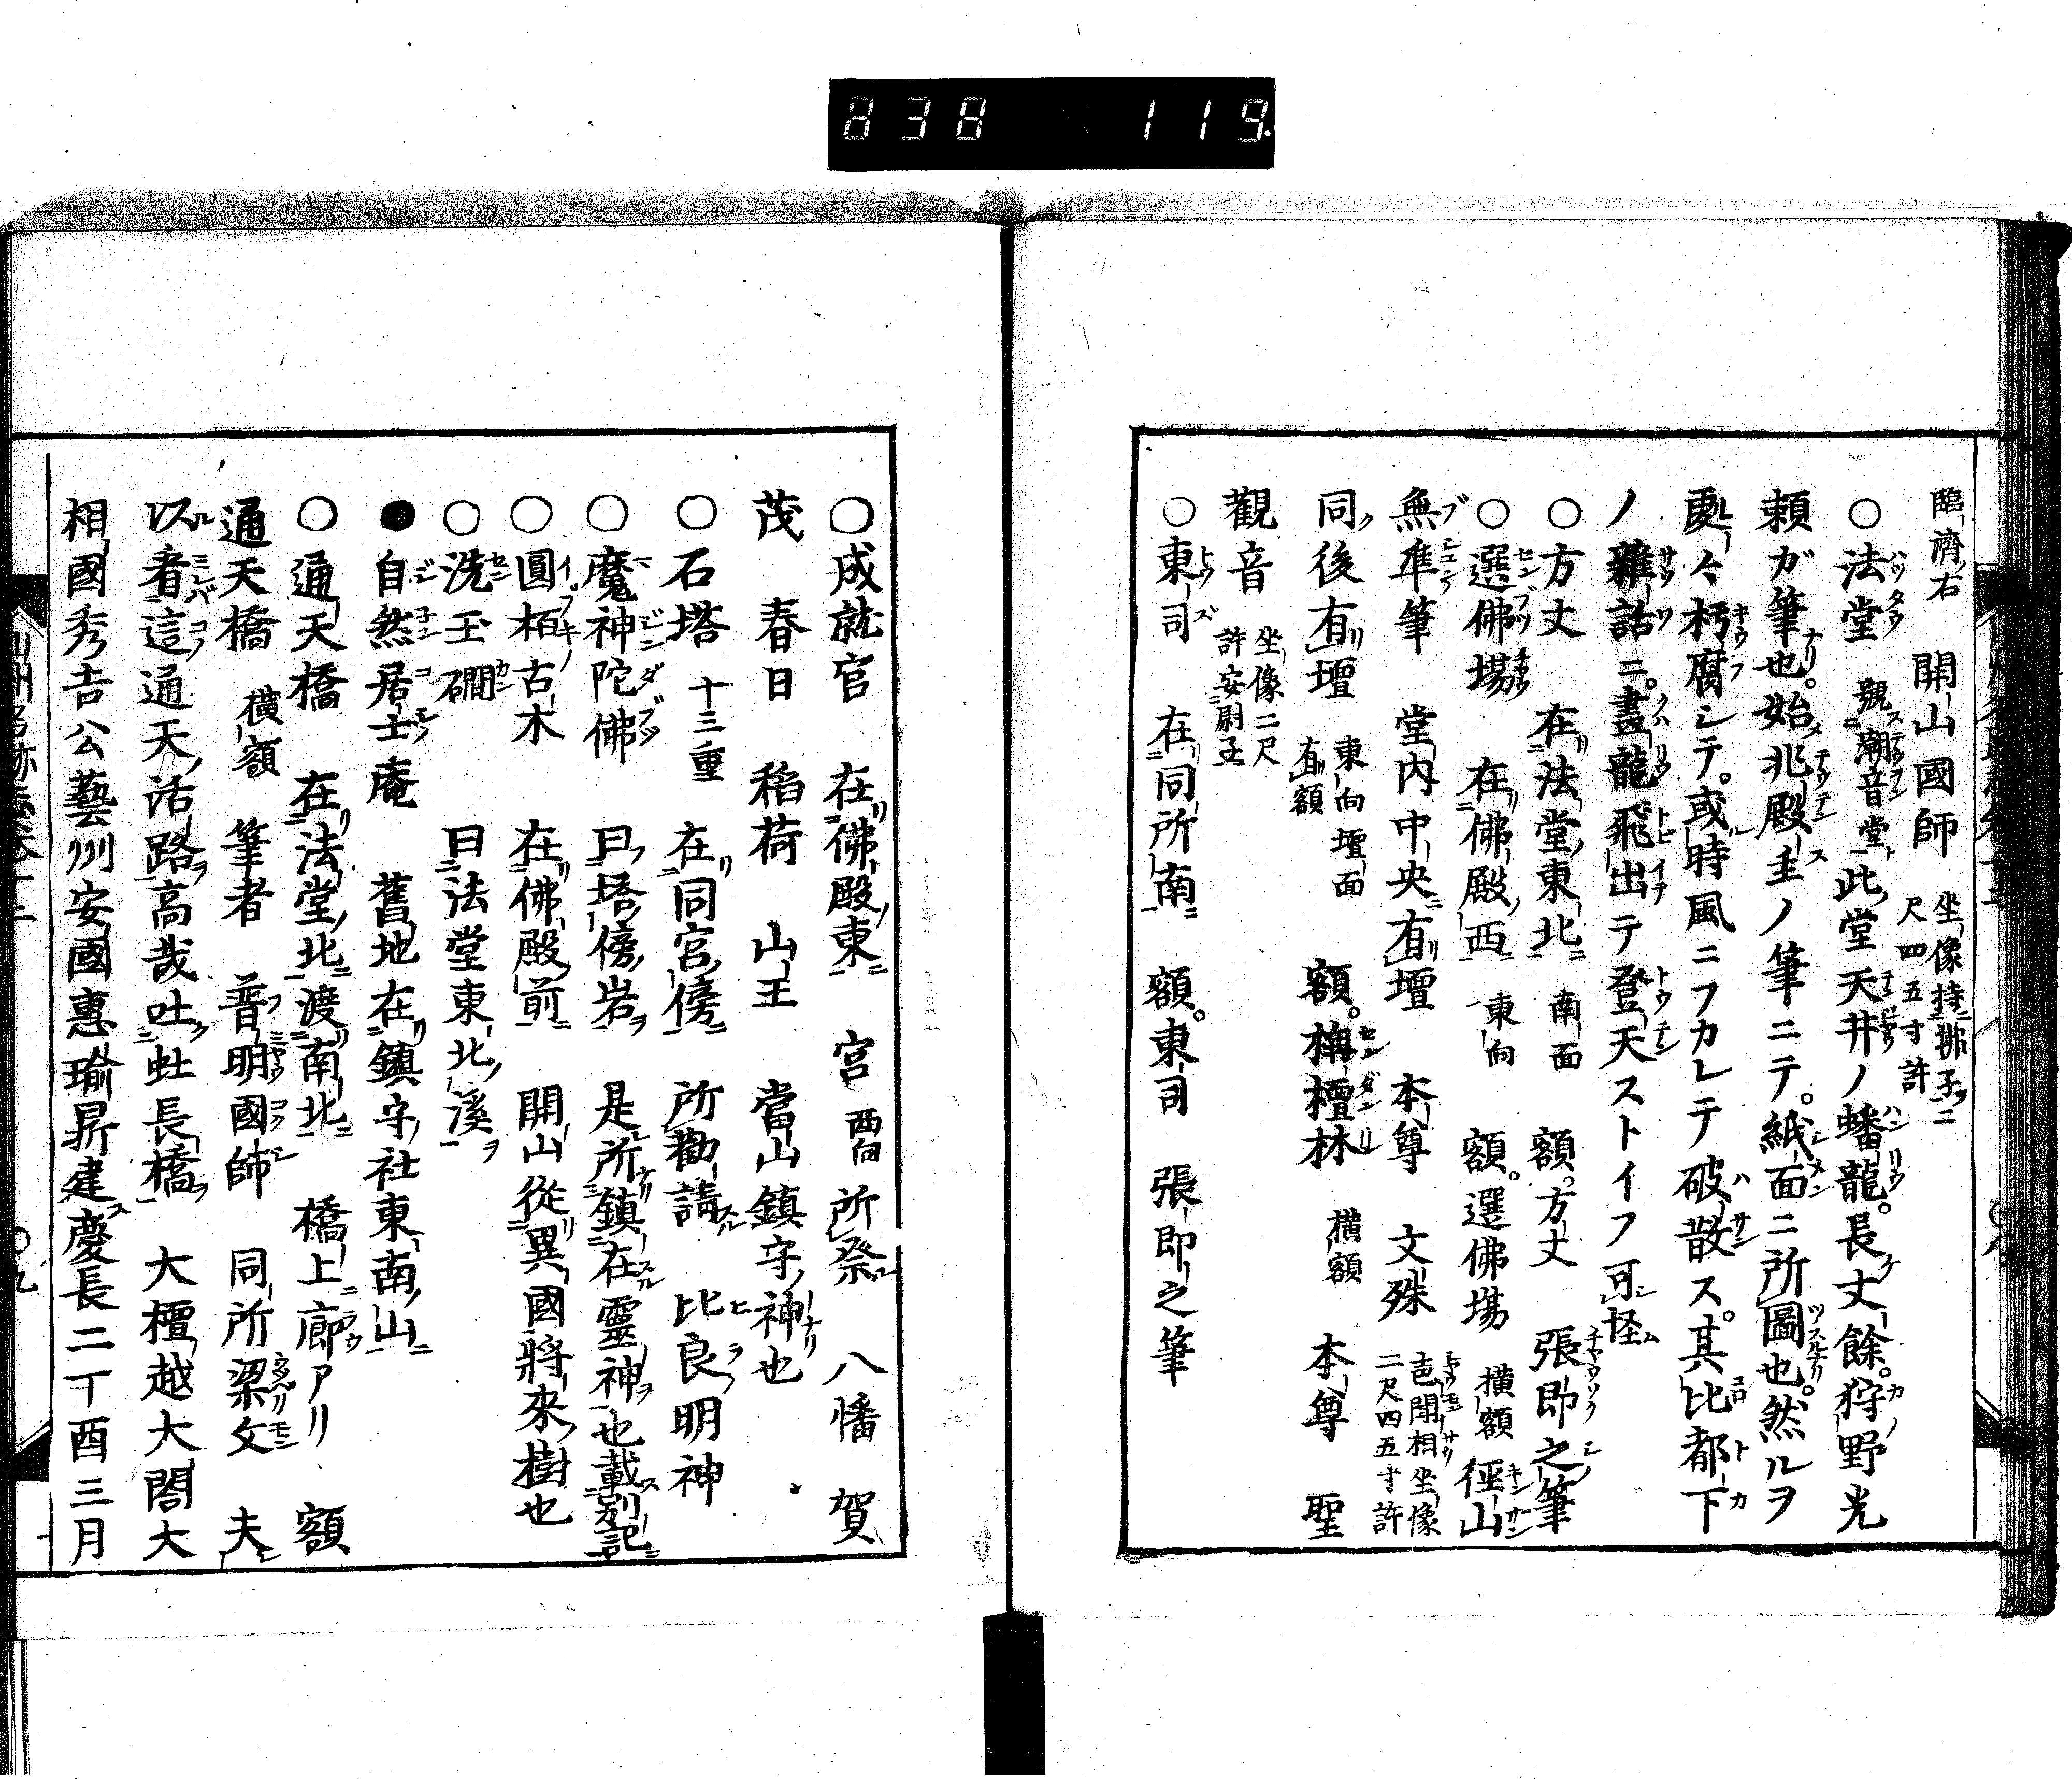 838 119
臨濟ノ右 開山國師 坐像持拂子ヲ二尺四五寸許
○法堂 號ス潮音堂ト此堂天井ノ蟠龍。長丈餘。狩野光
頼ガ筆也。始兆殿主ノ筆ニテ。紙面ニ所圖也。然ルヲ
處々朽腐シテ。或時風ニフカレテ破散ス。其比都下
ノ雜話ニ。畫龍飛出テ登天ストイフ可怪
○方丈 在法堂東北 南面 額。方丈 張即之筆
○選佛場 在佛殿西 東向 額。選佛場 横額 徑山
無準筆 堂内中央有壇 本尊 文殊 声聞相坐像二尺四五寸許
同後有壇 東向壇面有額 額。栴檀林 横額 本尊 聖
觀音 坐像二尺許安厨子
○東司 在同所南 額。東司 張即之筆
○成就宮 在佛殿東 宮西向 所祭 八幡 賀
茂 春日 稻荷 山王 當山鎮守ノ神也
○石塔 十三重 在同宮傍 所勸請 比良明神
○魔神陀佛 曰塔傍岩 是所鎮在靈神也載別記
○圓栢古木 在佛殿前 開山從異國將來樹也
○洗玉澗 曰法堂東北溪
●自然居士庵 舊地在鎮守社東南山
○通天橋 在法堂北渡南北 橋上廊アリ 額
通天橋 横額 筆者 普明國師 同所梁文 夫
以者這通天活路高哉吐虹長橋 大檀越大閤大
相國秀吉公藝州安國惠瑜昇建慶長二丁酉三月
山州名跡志卷十二 ○九